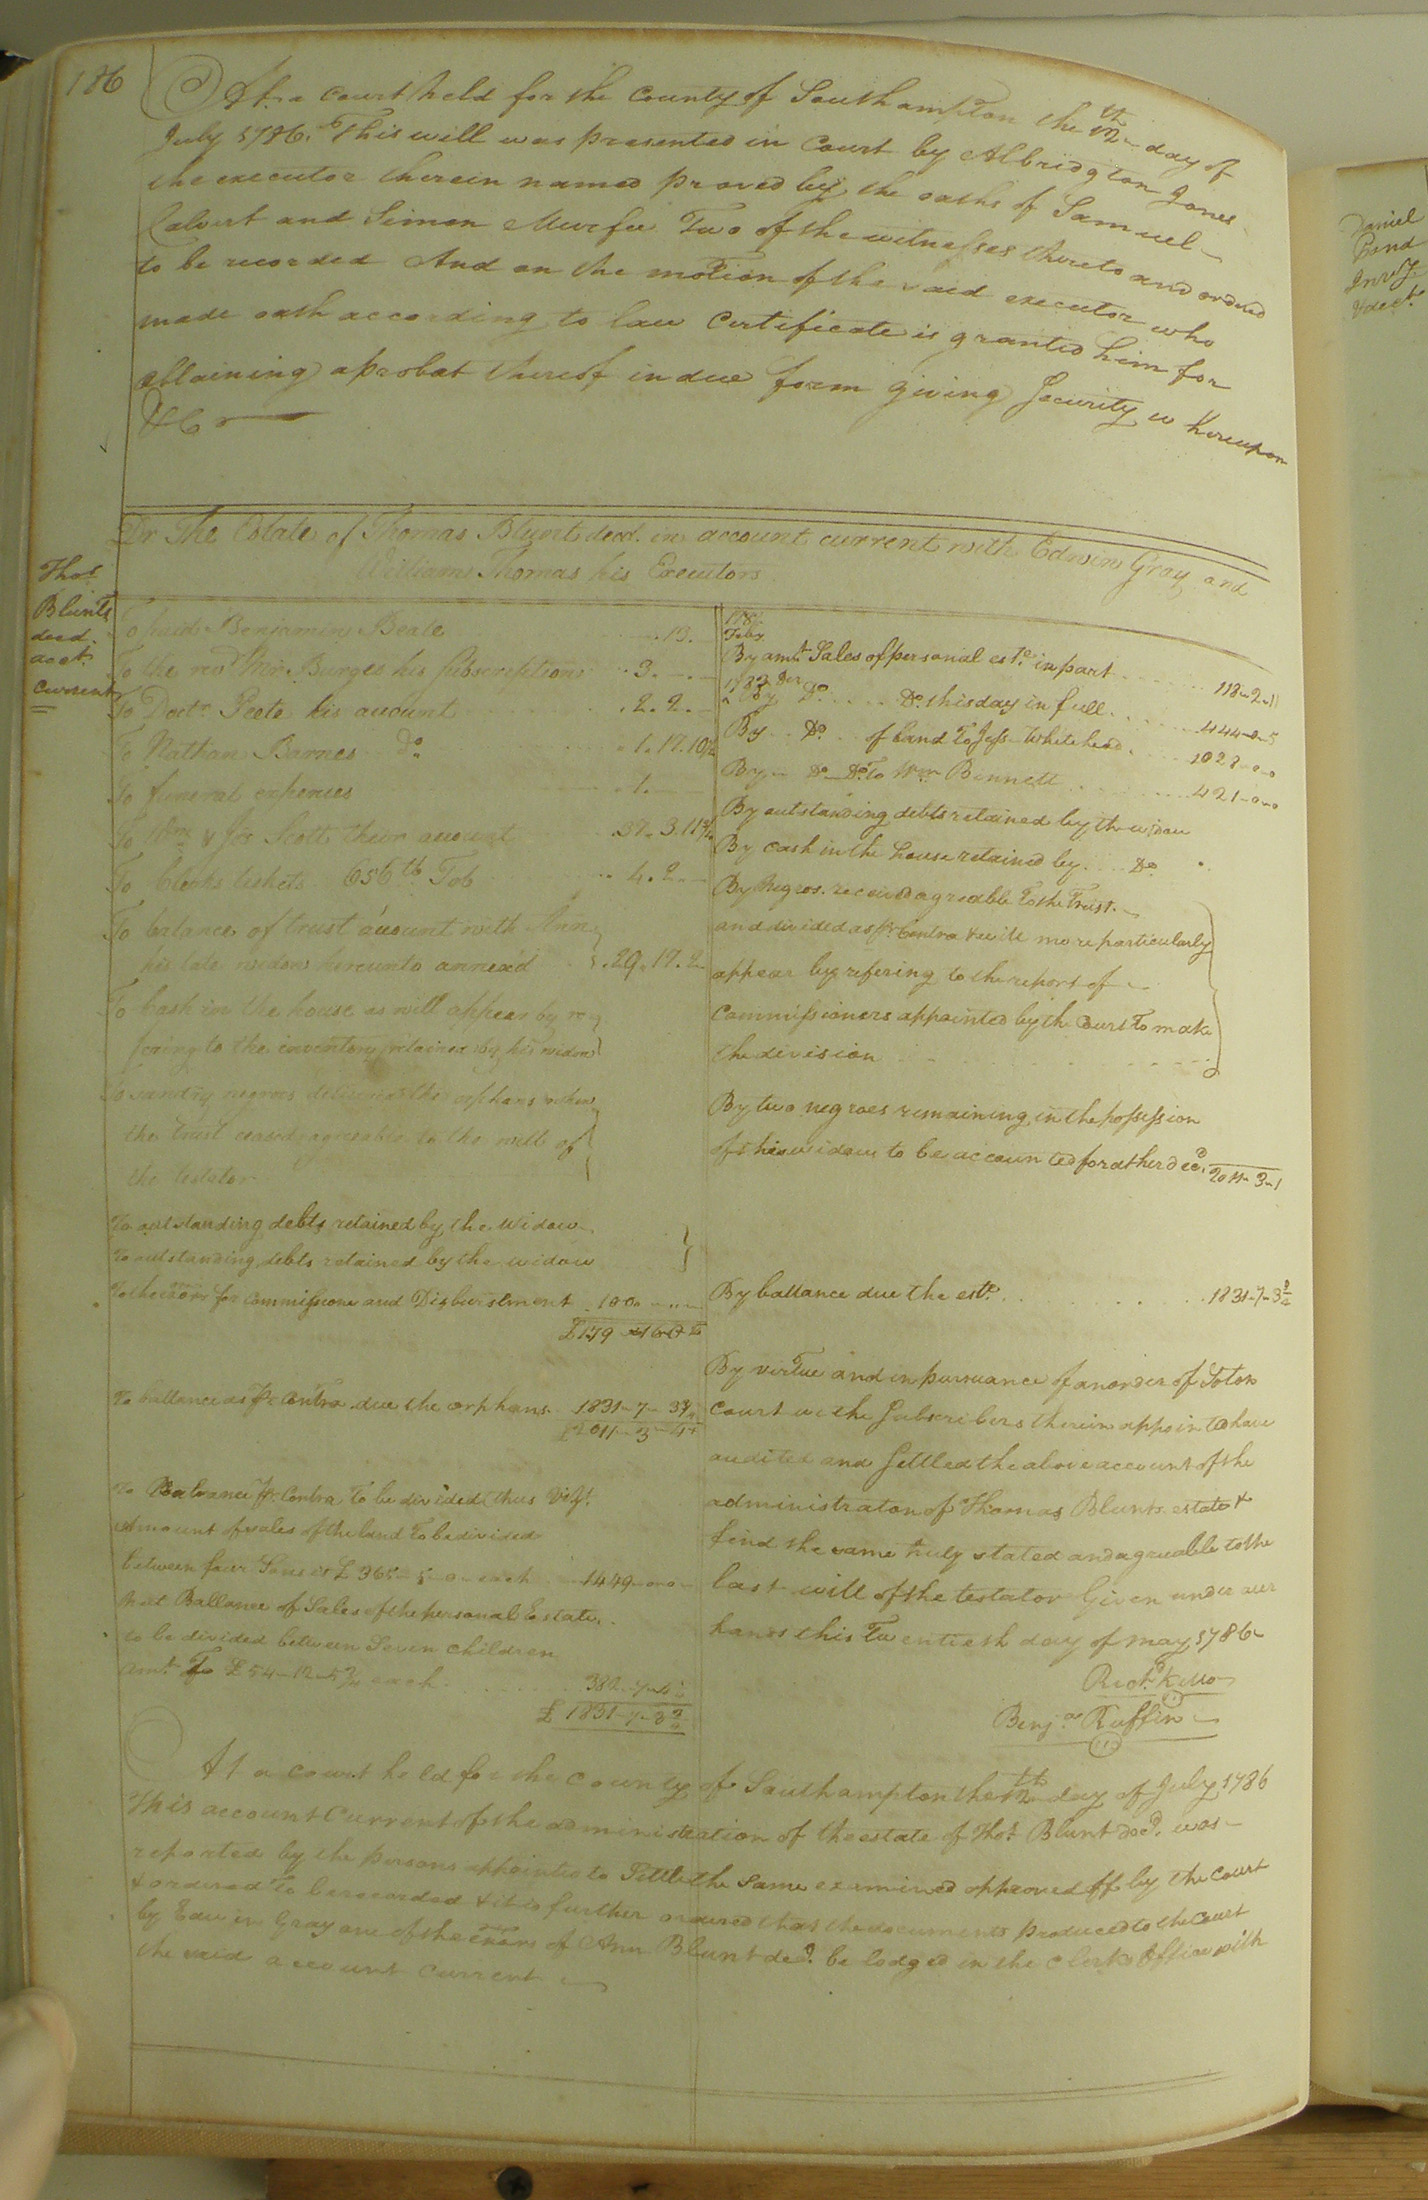 186
At a Court held for the County of Southampton the 12th day of
July 1786. This will was presented in Court by Albridgton Jones
the executor therein named proved by the oaths of Samuel
Calvert and Simon Murfee Two of the witnesses thereto and ordered
to be recorded And on the motion of the said executor who
made oath according to law Certificate is granted him for
obtaining a probat thereof in due form giving Security whereupon
&c
Dr. The Estate of Thomas Blunt decd. in account current with Edwin Gray and
William Thomas his Executors
Thos.
Blunts
decd.
acct.
Current
To paid Benjamin Beale . 13.
To the revd Mr. Burges his subscription 3. - . -
To Doctr. Peete his account . 2. 2. -
To Nathan Barnes Do. . 1. 17. 10½
To funeral expences . 1. -
To Wm. & Jas Scott their account 37. 3. 11¾
To Clerks tickets 656 lb Tob 4. 2. -
To balance of trust account with Ann
his late widow hereunto annex'd . 29. 17. 2
To Cash in the house as will appear by re
fering to the inventory retained by his widow
To sundry negroes delivered the orphans when
the trust ceased agreeable to the will of
the testator
To outstanding debts retained by the Widow
To outstanding debts retained by the widow
To the exors for Commissions and Disburstment . 100 " "
£179
To ballance as pr. Contra due the orphans 1831 - 7 - 3¾
£2011 - 3 - 1
To Balance pr. Contra To be divided thus Vizt.
Amount of sales of the land To be divided
between four Sons is £ 365 - 5 - 0 each 1449 - 0 - 0
Next Ballance of Sales of the personal Estate
to be divided between Seven Children
amt. To £54 - 12 - 5¾ each 382 - 7
£ 1831 - 7 - 3¾
178
Febr.
By amt. Sales of personal este. in part 118 - 2 - 11
1783 Dec
By Do. Do. this day in full 444 - 0 - 5
By Do. of land To Jess. Whitehead 1028 - 0 - 0
By Do. Do. To Wm Bennett 421 - 0 - 0
By outstanding debts retained by the widow
By Cash in the house retained by Do.
By Negros received agreable To the Trust
and divided as pr. Contra & will more particularly
appear by refering to the report of
Commissioners appointed by the Court To make
the division
By two negroes remaining in the possession
of his widow to be accounted for at her decd. 2011 - 3 - 1
By ballance due the este. 1831 - 7 - 3¾
By virtue and in pursuance of an order of Soton
Court we the Subscribers therein appointed have
audited and Settled the above account of the
administraton of Thomas Blunts estate &
find the same truly stated and agreeable to the
last will of the testator Given under our
hands this Twentieth day of may 1786
Richd. Kello
Benja. Ruffin
At a court held for the County of Southampton the 12th day of July 1786
This account Current of the administration of the estate of Thos. Blunt decd. was
reported by the persons appointed to Settle the Same examined approved off by the Court
& ordered To be recorded & it is further ordered that the documents produced to the Court
by Edwin Gray one of the exors of Ann Blunt decd. be lodged in the clerks Office with
the said account Current
Daniel
Bond
Invy.